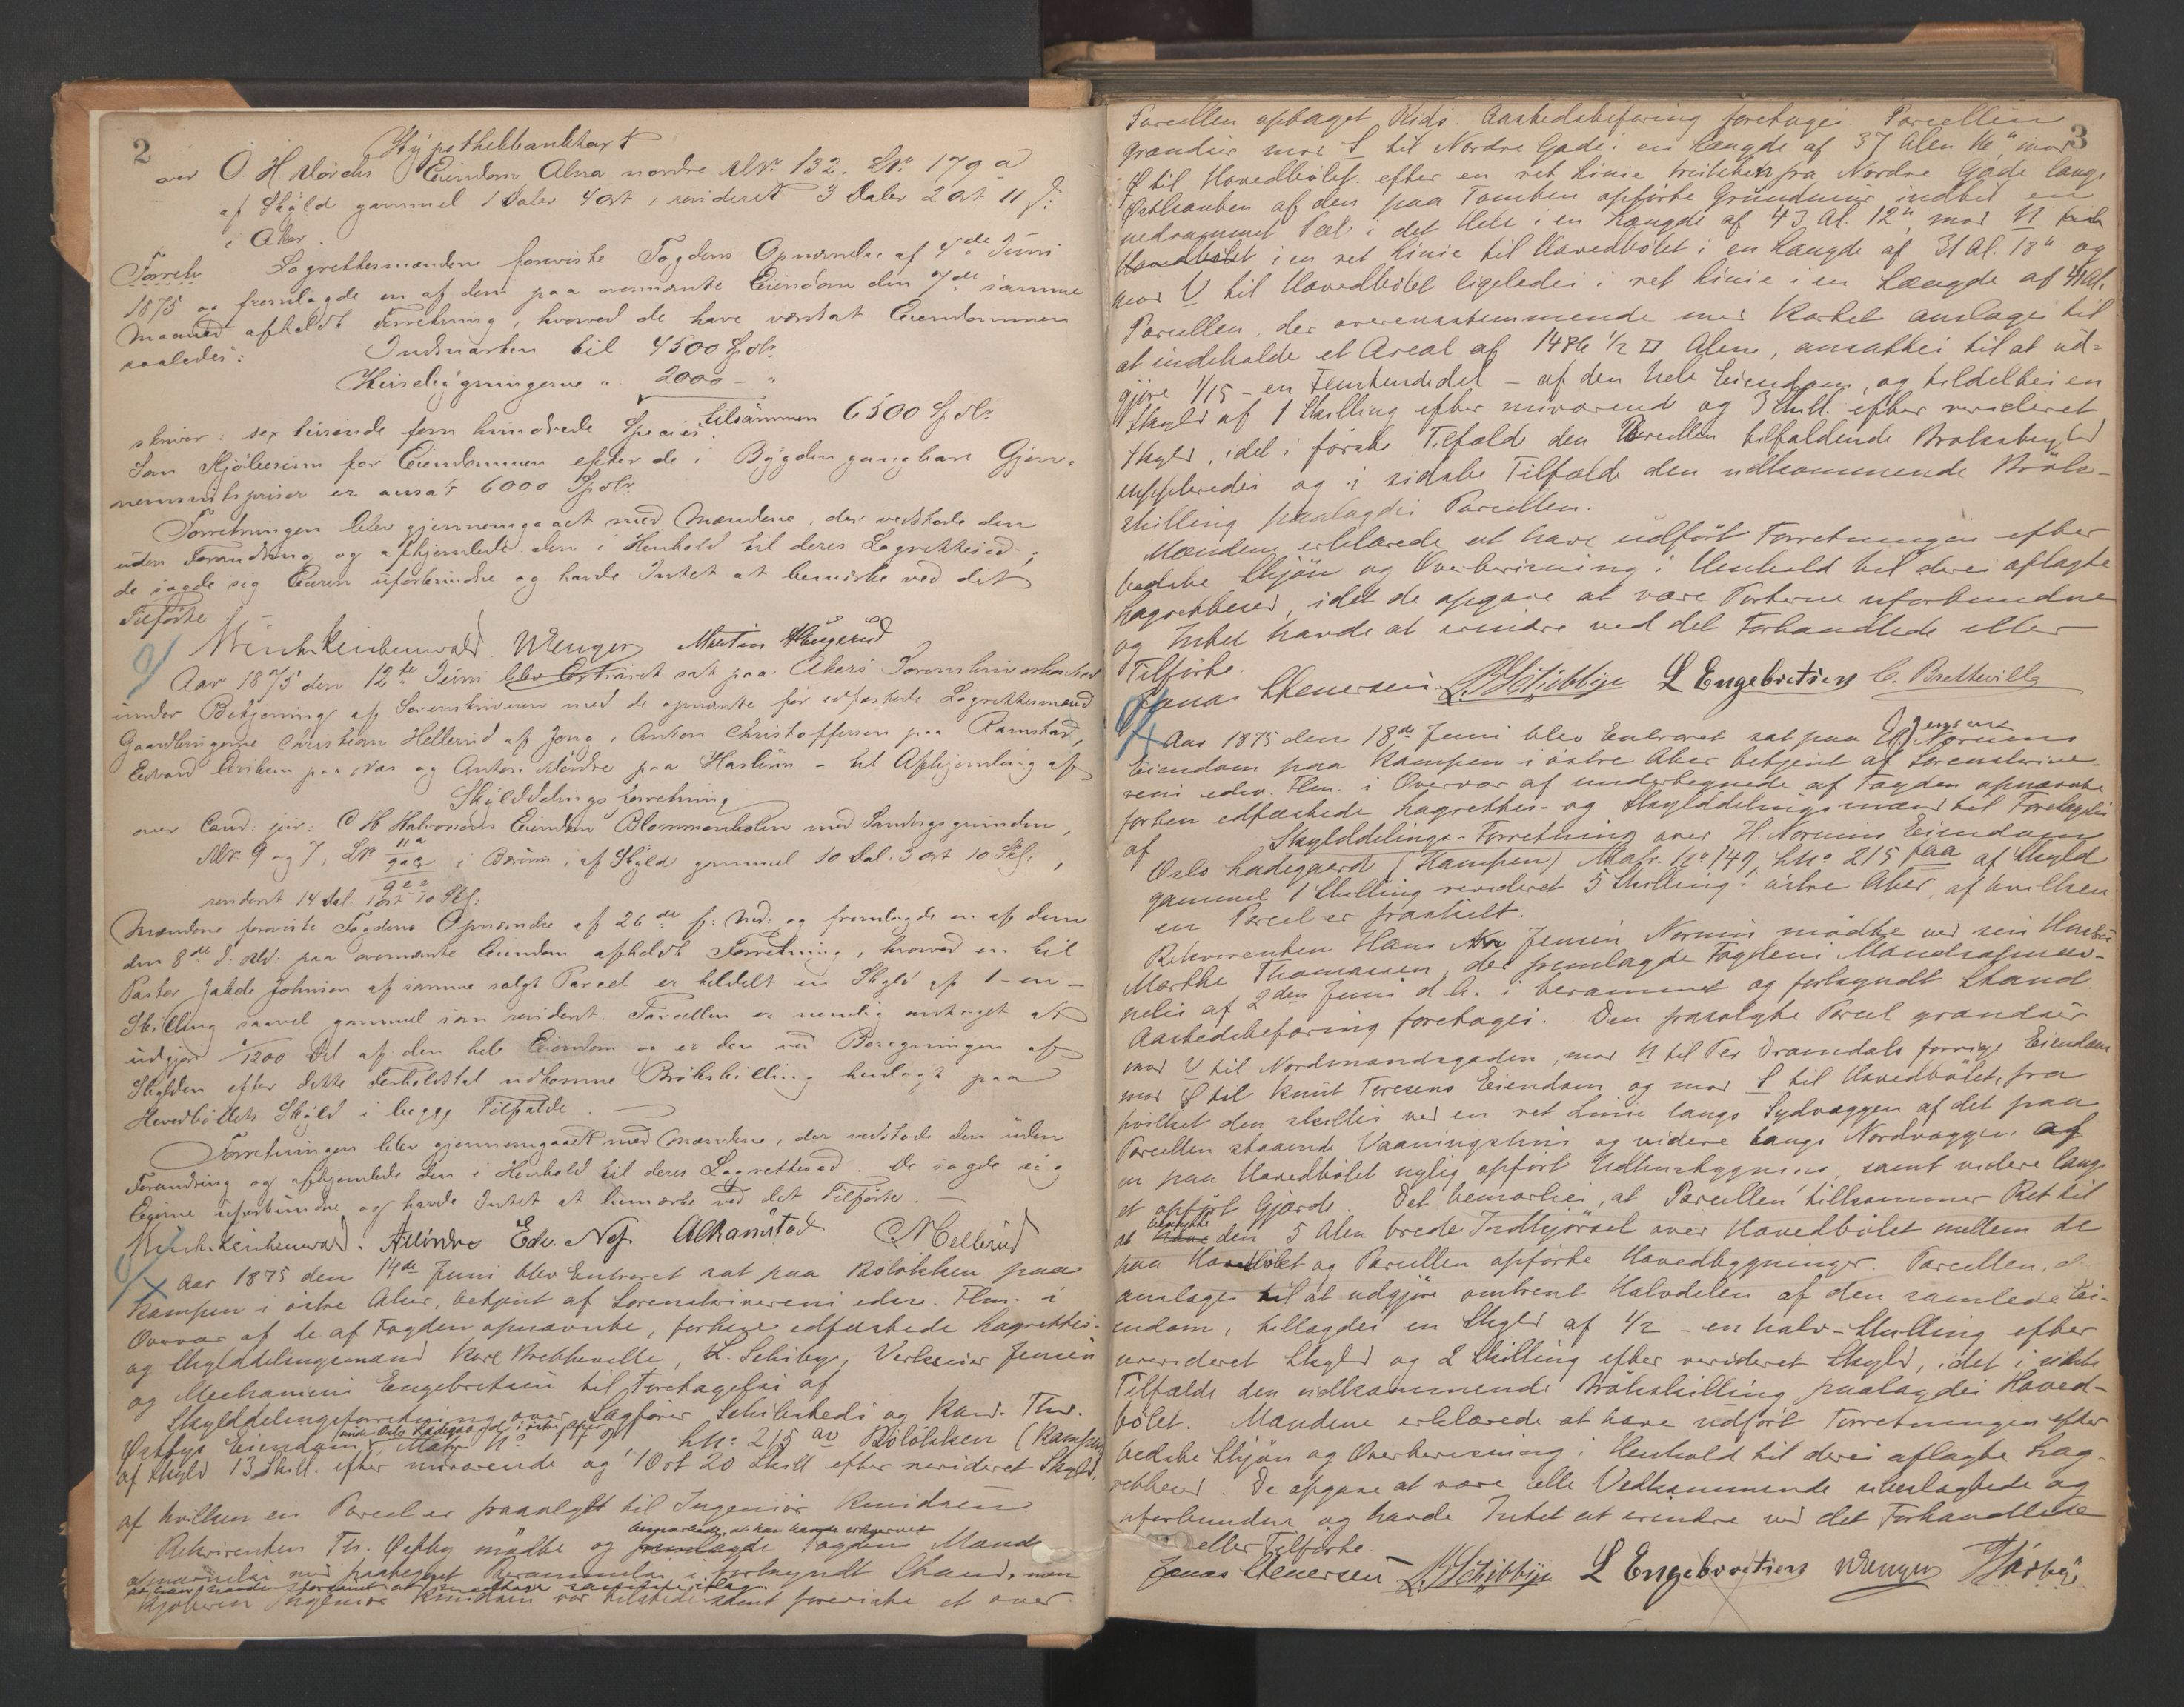 2
Hypothekbanktaxt
over O. H. Eiendom Alna nordre MNr. 132. LNr. 179 a
af Skyld gammel 1 Daler 4 ort, revideret 3 Daler 2 ort 11 s:
i Aker.
Forretn Lagrettesmændene foreviste Fogdens Opnævnelse af 4de Juni
1875 og fremlagde en af dem paa ovennævnte Eiendom den 7de samme
Maaned afholdt Forretning, hvorved de have værdsat Eiendommen
saaledes: Indmarken til 4500 Spdlr
Husebygningerne " 2000 - "
tilsammen 6500 Spdlr
skriver: sex tusinde fem hundrede Species.
Som Kjøbesum for Eiendommen efter de i Bygden gangbare Gjen-
nemsnitspriser er ansat 6000 Spdlr.
Forretningen blev gjennemgaaet med Mændene, der vedstode den
uden Forandring og afhjemlede den i Henhold til deres Lagretteed;
de sagde sig Eieren uforbundne og havde Intet at bemærke ved det
Tilførte.
Wenger Martin Haugerud
Aar 1875 den 12te Juni blev Extraret sat paa Akers Sorenskriverkontor
under Betjening af Sorenskriveren med de opnævnte før edfæstede Lagrettesmænd
Gaardbrugerne Christian Hellerud af Jong, Anton Christoffersen paa Ramstad,
Edvard paa Næs og Anton paa Haslum – til Afhjemling af
Skylddelingsforretning
over Cand. jur: C H Halvorsens Eiendom Blommenholm med Sandvigsgrunden,
MNr. 9 og 7, LNr. 11a 9 a c 9 e e i Bærum, af Skyld gammel 10 Dal. 3 ort 10 Skl:,
revideret 14 Dal. 1 ort 10 Skl:
Mændene foreviste Fogdens Opnævnelse af 26de f: Md: og fremlagde en af dem
den 8de d. Md. paa ovennævnte Eiendom afholdt Forretning, hvorved en til
Pastor Johnson af samme solgt Parcel er tildelt en Skyld af 1 – en –
Skilling saavel gammel som revideret. Parcellen er nemlig antaget at
udgjøre 1/1200 Del af den hele Eiendom og er den ved Beregningen af
Skylden efter dette Forholdstal udkomne Brøkskilling henlagt paa
Hovedbøllets Skyld i begge Tilfælde.
Forretningen blev gjennemgaaet med Mændene, der vedstode den uden
Forandring og afhjemlede den i Henhold til deres Lagretteed. De sagde sig
Eierne uforbundne og havde Intet at bemærke ved det Tilførte. —
Edv. Næs AChRamstad CHellerud
Aar 1875 den 14de Juni blev Extraret sat paa Bøløkken paa
Kampen i østre Aker, betjent af Sorenskriverens edsv. Flm. i
Overvær af de af Fogden opnævnte, forhen edfæstede Lagrettes-
og Skylddelingsmænd Karl Brettevelle, L. Schibye, Verkseier Jensen
og Mechanicus Engebretsen til Foretagelse af
Skylddelingsforretning over Sagfører og Kand. Th.
Østbys Eiendom under Oslo Ladegaard i østre Aker Matr No 149 LNo 215 av Bøløkken (Kampen)
af Skyld 13 Skill. efter nuværende og 1 Ort 20 Skill efter revideret Skyld,
af hvilken en Parcel er frasolgt til Ingeniør Knudsen
Rekvirenten Th. Østby mødte og fremlagde bemærkede, at han havde erhvervet Fogdens Mands
opnævnelse med paategnet Berammelse i forkyndt Stand, men
Kjøberen Ingeniør Knudsen var tilstede samt foreviste et over
3
Parcellen optaget Rids. Aastedsbefaring foretoges. Parcellen
grændser mod S til Nordre Gade i en Længde af 37 Alen 16" mod
Ø til Hovedbølet efter en ret Linie trukken fra Nordre Gade langs
Østkanten af den paa Tomten opførte Grundmur indtil en
nedrammet Pæl i det Hele i en Længde af 43 Al. 12", mod N til
Hovedbølet i en ret Linie til Hovedbølet i en Længde af 31 Al. 18" og
mod V til Hovedbølet ligeledes i ret Linie i en Længde af 41 Al.
Parcellen, der overensstemmende med Kartet ansloges til
at indeholde et Areal af 1486 1/2 □ Alen, ansattes til at ud-
gjøre 1/15 – en Femtendedel – af den hele Eiendom, og tildeltes en
Skyld af 1 Skilling efter nuværende og 3 Skill. efter revideret
Skyld, idet i første Tilfælde den Parcellen tilfaldende Brøkskyld
suppleredes og i sidste Tilfælde den udkommende Brøk-
skilling paalagdes Parcellen.
Mændene erklærede at have udført Forretningen efter
bedste Skjøn og Overbevisning i Henhold til deres aflagte
Lagretteseed, idet de opgave at være Parterne uforbundne
og Intet havde at erindre ved det Forhandlede eller
Tilførte.
Jonas Stenersen L. Schibbye L Engebretsen C. Brettevilla
Aar 1875 den 18de Juni blev Extraret sat paa H. Jensens Normes
Eiendom paa Kampen i østre Aker betjent af Sorenskrive-
rens edsv. Flm. i Overvær af undertegnede af Fogden opnævnte
forhen edfæstede Lagrettes- og Skylddelingsmænd til Foretagelse
af Skylddelings-Forretning over H. Normes Eiendom
Oslo Ladegaard (Kampen) Matr. No 149, LNo 215 faa af Skyld
gammel 1 Skilling revideret 5 Skilling i østre Aker, af hvilken
en Parcel er fraskilt.
Rekvirenten Hans Jensen Normes mødte ved sin Hustru
Marthe Thomassen, der fremlagde Fogdens Mandsopnæv-
nelse af 2den Juni d. A. i berammet og forkyndt Stand.
Aastedsbefaring foretoges. Den frasolgte Parcel grændser
mod V til Nordmandsgaden, mod N til Per Dramdals forrige Eiendom
mod Ø til Knut Toresens Eiendom og mod S til Hovedbølet, fra
hvilket den skilles ved en ret Linie langs Sydvæggen af det paa
Parcellen staaende Vaaningshus og videre langs Nordvæggen af
en paa Hovedbølet nylig opført Udhusbygning, samt videre langs
et opført Gjærde. Det bemærkes, at Parcellen tilkommer Ret til
at benytte den 5 Alen brede Indkjørsel over Hovedbølet mellem de
paa Hovedbølet og Parcellen opførte Hovedbygninger. Parcellen, der
ansloges til at udgjøre omtrent Halvdelen af den samlede Ei-
endom, tillagdes en Skyld af 1/2 – en halv – Skilling efter
urevideret Skyld og 2 Skilling efter revideret Skyld, idet i sidste
Tilfælde den udkommende Brøkskilling paalagdes Hoved-
bølet. Mændene erklærede at have udført Forretningen efter
bedste Skjøn og Overbevisning i Henhold til deres aflagte Lag-
retteseed. De opgave at være alle Vedkommende ubeslægtede og
uforbundne og havde Intet at erindre ved det Forhandlede
eller Tilførte.
Jonas Stenersen L. Schibbye L Engebretsen Wenger